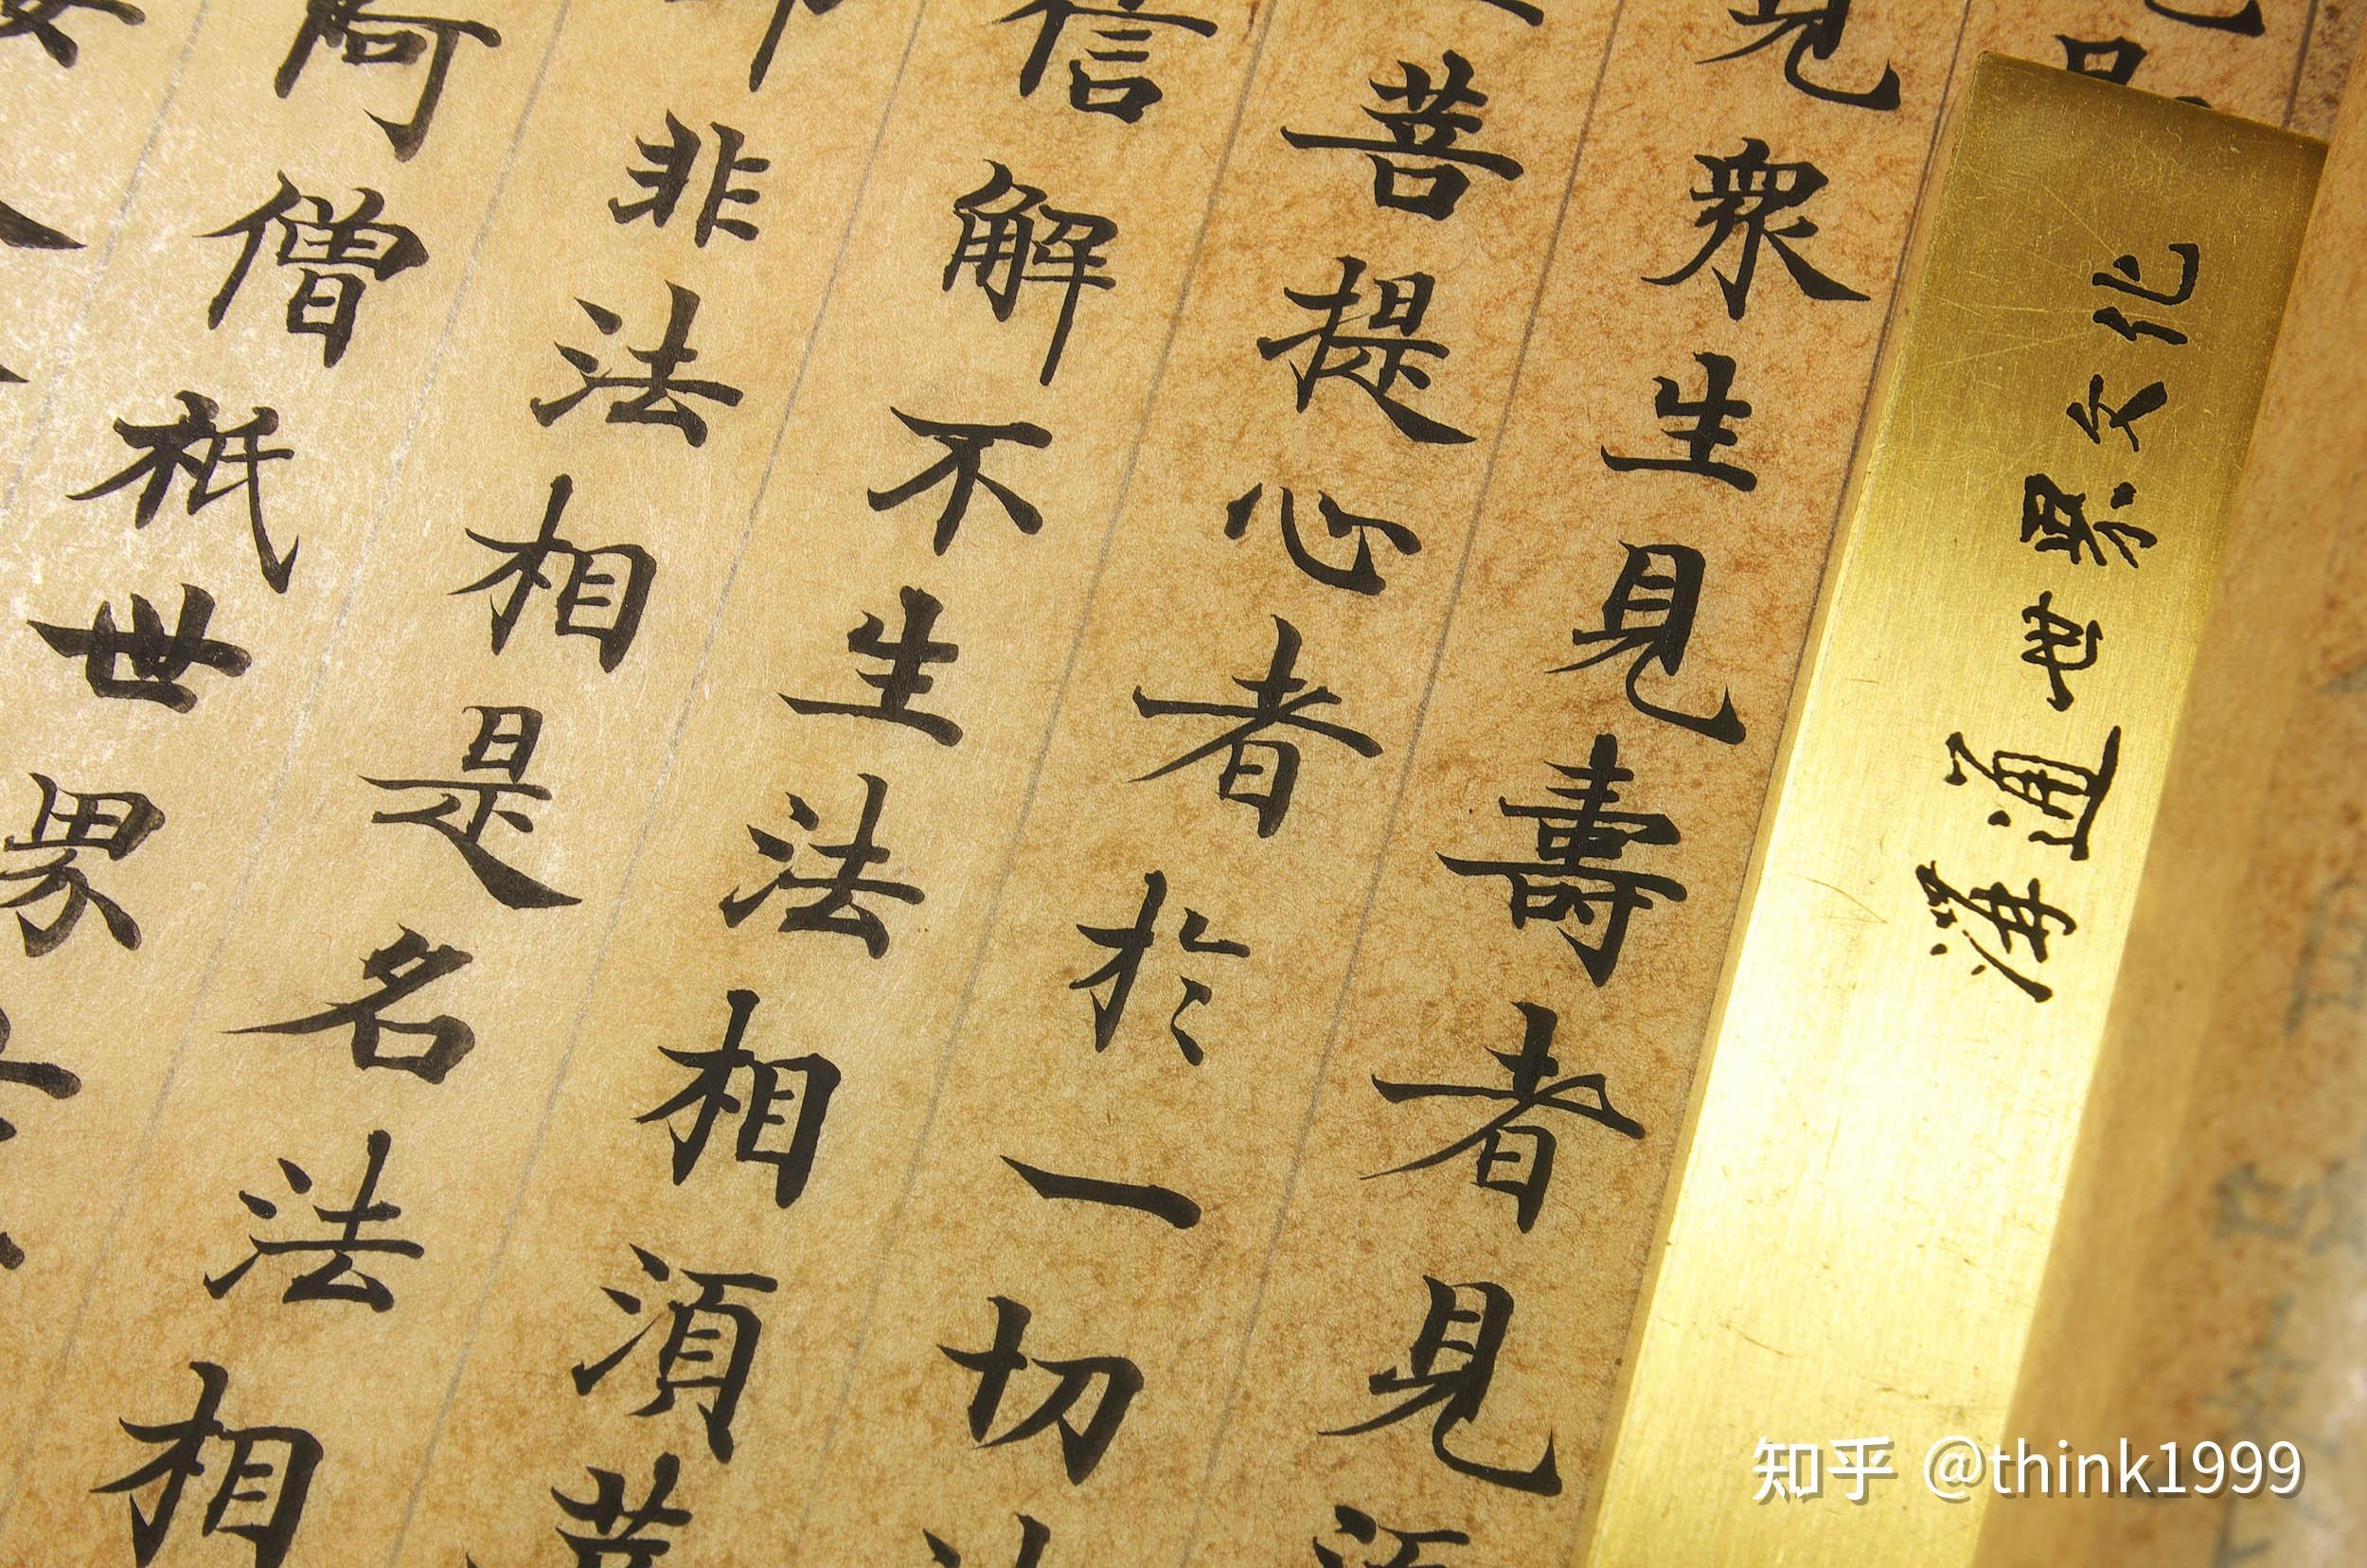 溝通世界文化
見衆生見壽者見
菩提心者於一切
信解不生法相湏菩
非法相是名法相
阿僧祇世界
知乎 @think1999